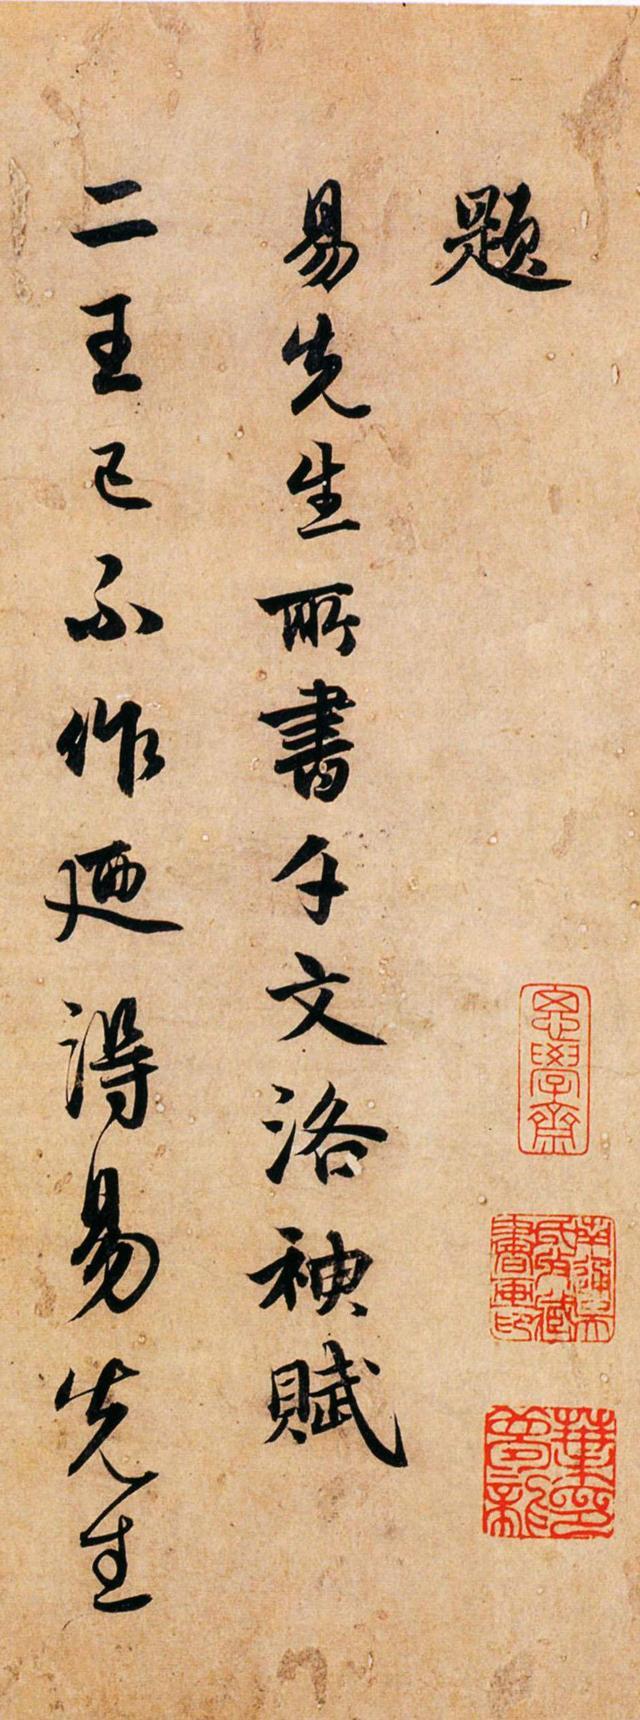 題
易先生所書千文洛神賦
二王已不作廼得易先生